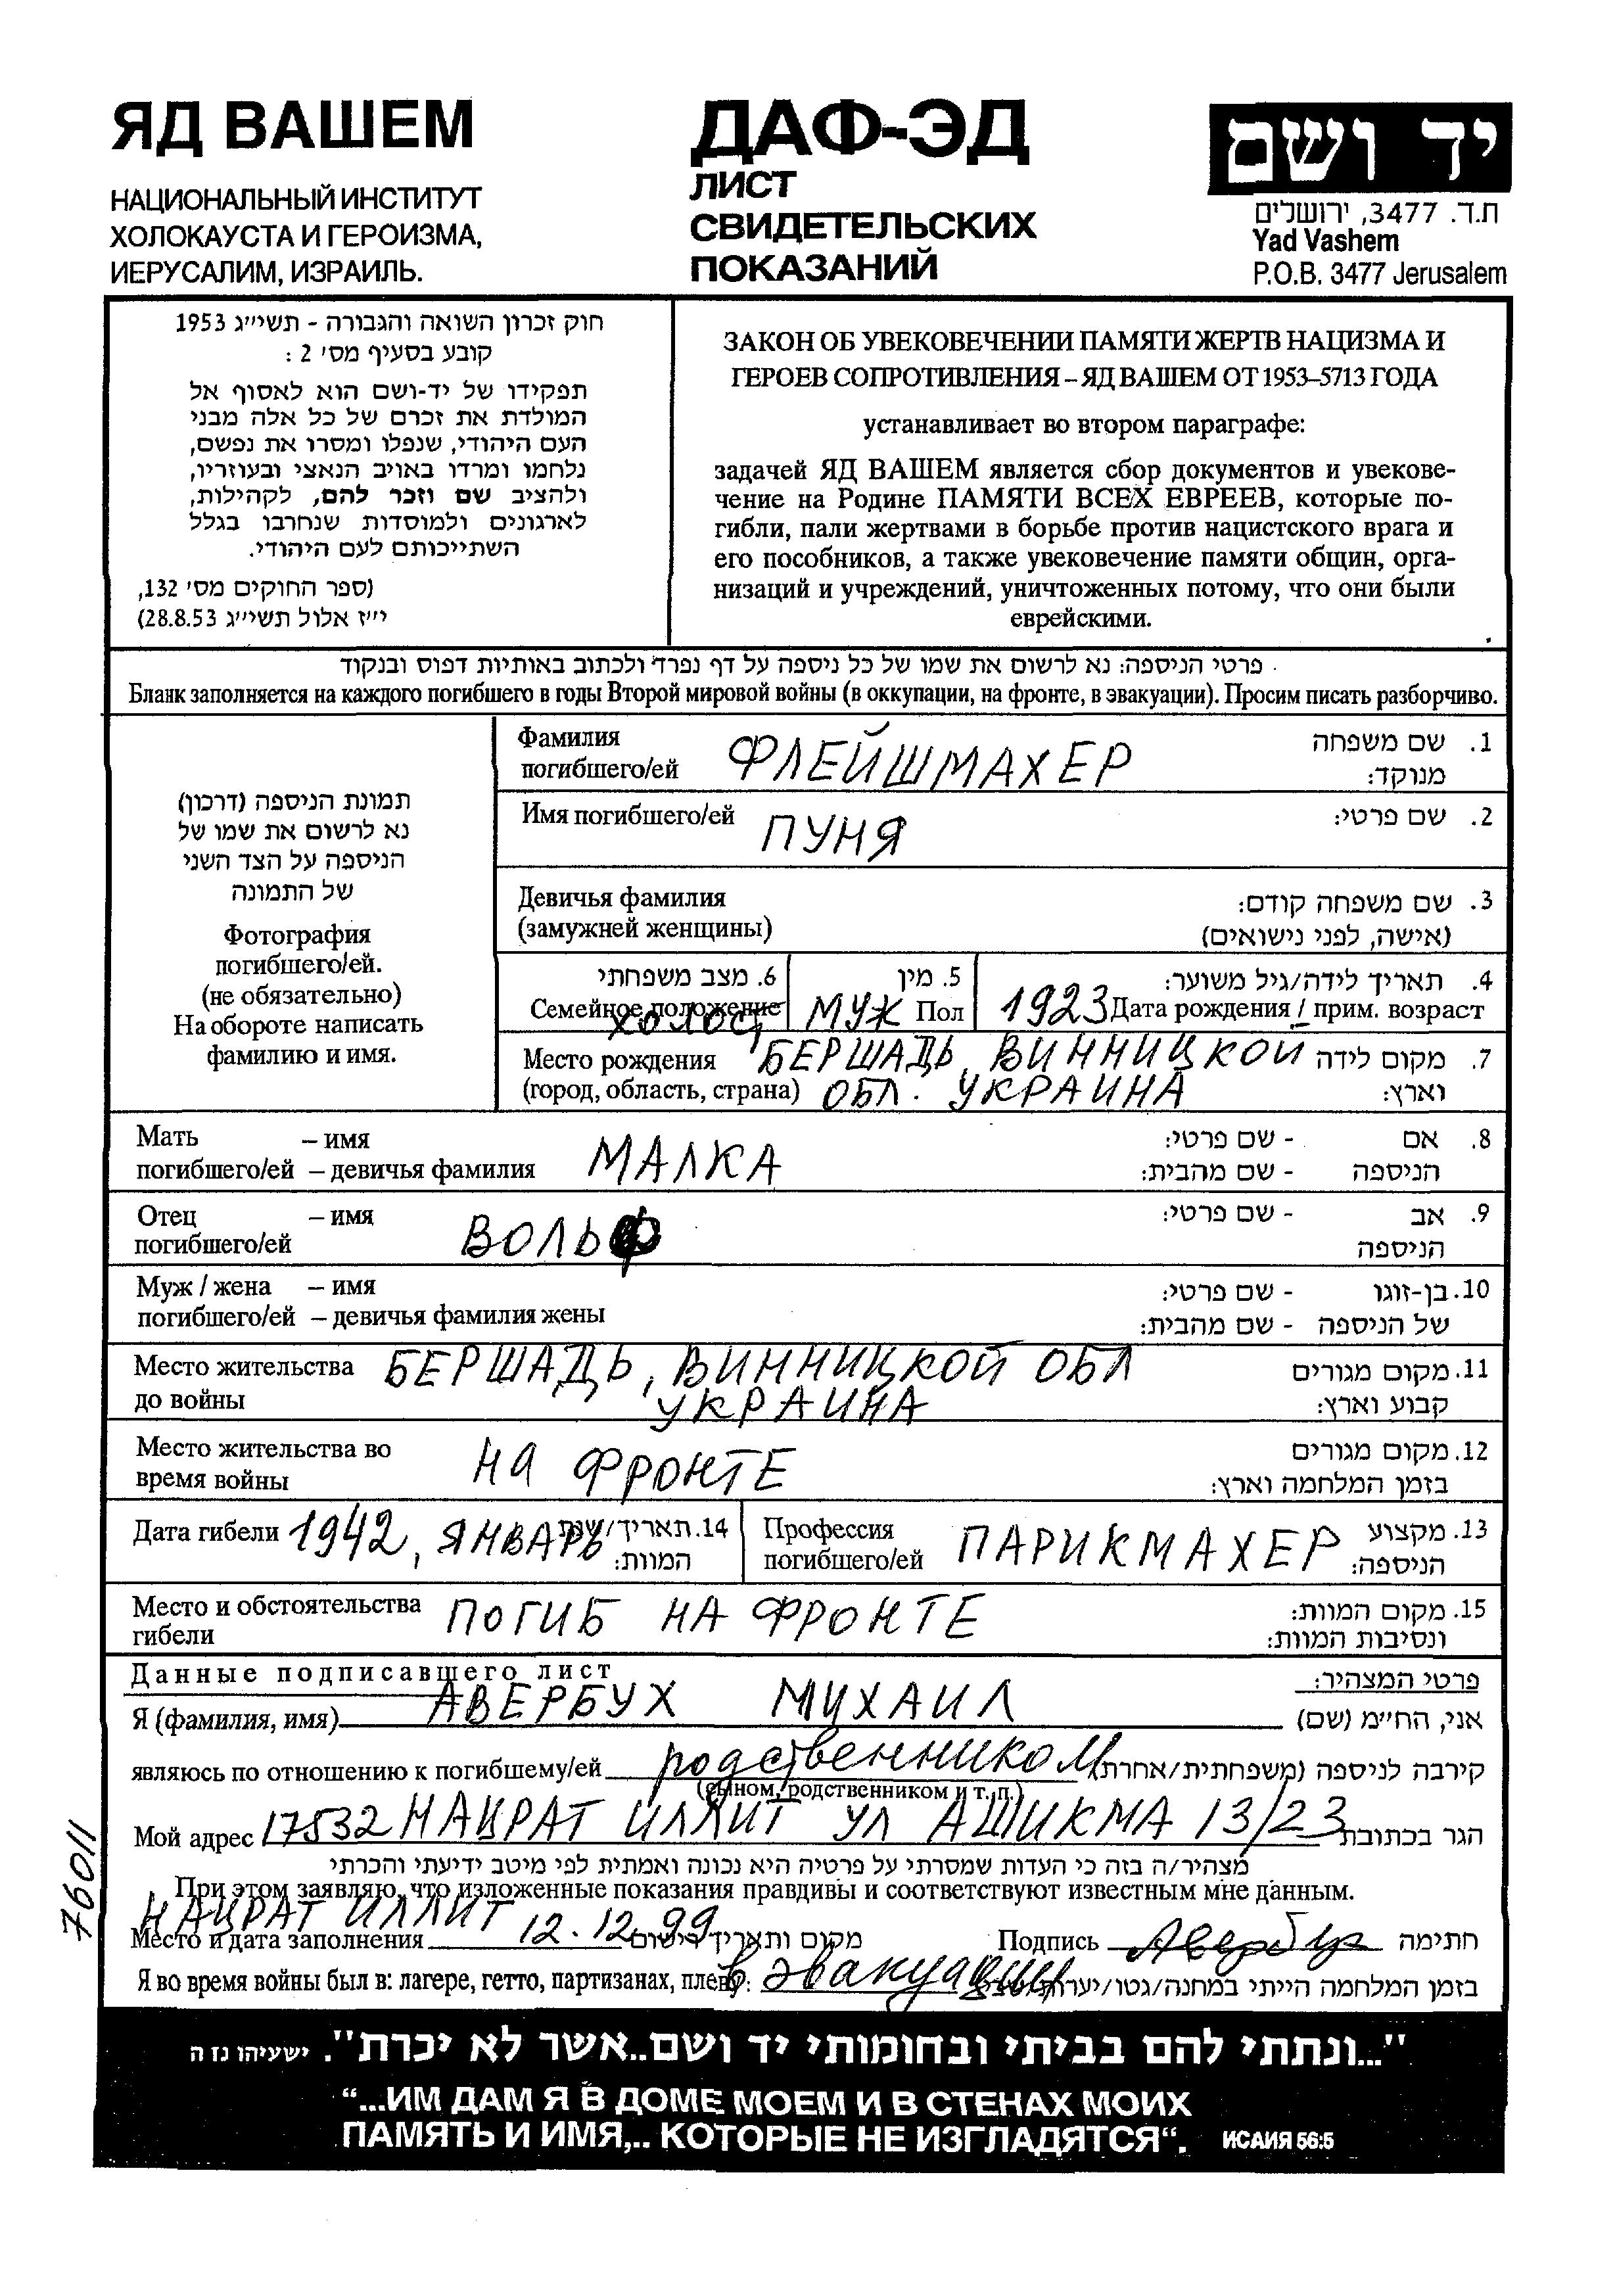 ЯД ВАШЕМ
НАЦИОНАЛЬНЫЙ ИНСТИТУТ
ХОЛОКАУСТА И ГЕРОИЗМА,
ИЕРУСАЛИМ, ИЗРАИЛЬ.
ДАФ-ЭД
ЛИСТ
СВИДЕТЕЛЬСКИХ
ПОКАЗАНИЙ
יד ושם
ת.ד. 3477, ירושלים
Yad Vashem
P.O.B. 3477 Jerusalem
חוק זכרון השואה והגבורה - תשי״ג 1953
קובע בסעיף מס׳ 2 :
תפקידו של יד-ושם הוא לאסוף אל
המולדת את זכרם של כל אלה מבני
העם היהודי, שנפלו ומסרו את נפשם,
נלחמו ומרדו באויב הנאצי ובעוזריו,
ולהציב שם וזכר להם, לקהילות,
לארגונים ולמוסדות שנחרבו בגלל
השתייכותם לעם היהודי.
(ספר החוקים מס׳ 132,
י״ז אלול תשי״ג 28.8.53)
ЗАКОН ОБ УВЕКОВЕЧЕНИИ ПАМЯТИ ЖЕРТВ НАЦИЗМА И
ГЕРОЕВ СОПРОТИВЛЕНИЯ – ЯД ВАШЕМ ОТ 1953–5713 ГОДА
устанавливает во втором параграфе:
задачей ЯД ВАШЕМ является сбор документов и увекове-
чение на Родине ПАМЯТИ ВСЕХ ЕВРЕЕВ, которые по-
гибли, пали жертвами в борьбе против нацистского врага и
его пособников, а также увековечение памяти общин, орга-
низаций и учреждений, уничтоженных потому, что они были
еврейскими.
פרטי הניספה: נא לרשום את שמו של כל ניספה על דף נפרד ולכתוב באותיות דפוס ובנקוד
Бланк заполняется на каждого погибшего в годы Второй мировой войны (в оккупации, на фронте, в эвакуации). Просим писать разборчиво.
תמונת הניספה (דרכון)
נא לרשום את שמו של
הניספה על הצד השני
של התמונה
Фотография
погибшего/ей.
(не обязательно)
На обороте написать
фамилию и имя.
Фамилия ФЛЕЙШМАХЕР 1. שם משפחה
погибшего/ей מנוקד:
Имя погибшего/ей ПУНЯ 2. שם פרטי:
Девичья фамилия 3. שם משפחה קודם:
(замужней женщины) (אישה, לפני נישואים)
6. מצב משפחתי 5. מין 4. תאריך לידה/גיל משוער:
Семейное положение ХОЛОСТ МУЖ Пол 1923 Дата рождения / прим. возраст
Место рождения БЕРШАДЬ, ВИННИЦКОЙ 7. מקום לידה
(город, область, страна) ОБЛ. УКРАИНА וארץ:
Мать – имя МАЛКА 8. אם - שם פרטי:
погибшего/ей – девичья фамилия הניספה - שם מהבית:
Отец – имя ВОЛЬФ 9. אב - שם פרטי:
погибшего/ей הניספה
Муж / жена – имя 10. בן-זוגו - שם פרטי:
погибшего/ей – девичья фамилия жены של הניספה - שם מהבית:
Место жительства БЕРШАДЬ, ВИННИЦКОЙ ОБЛ 11. מקום מגורים
до войны УКРАИНА קבוע וארץ:
Место жительства во НА ФРОНТЕ 12. מקום מגורים
время войны בזמן המלחמה וארץ:
Дата гибели 1942, ЯНВАРЬ 14. תאריך/שנת המוות:
Профессия ПАРИКМАХЕР 13. מקצוע
погибшего/ей הניספה:
Место и обстоятельства ПОГИБ НА ФРОНТЕ 15. מקום המוות:
гибели ונסיבות המוות:
Данные подписавшего лист פרטי המצהיר:
Я (фамилия, имя) АВЕРБУХ МИХАИЛ אני, הח״מ (שם)
являюсь по отношению к погибшему/ей родственником קירבה לניספה (משפחתית/אחרת)
(сыном, родственником и т. п.)
Мой адрес 17532 НАЦРАТ ИЛЛИТ УЛ АШИКМА 13/23 הגר בכתובת
מצהיר/ה בזה כי העדות שמסרתי על פרטיה היא נכונה ואמתית לפי מיטב ידיעתי והכרתי
При этом заявляю, что изложенные показания правдивы и соответствуют известным мне данным.
НАЦРАТ ИЛЛИТ
Место и дата заполнения 12.12.99 מקום ותאריך רישום Подпись Авербух חתימה
Я во время войны был в: лагере, гетто, партизанах, плену: в эвакуации בזמן המלחמה הייתי במחנה/גטו/יערות/
76011
"...ונתתי להם בביתי ובחומותי יד ושם..אשר לא יכרת". ישעיהו נז ה
“...ИМ ДАМ Я В ДОМЕ МОЕМ И В СТЕНАХ МОИХ
ПАМЯТЬ И ИМЯ,.. КОТОРЫЕ НЕ ИЗГЛАДЯТСЯ“. ИСАИЯ 56:5